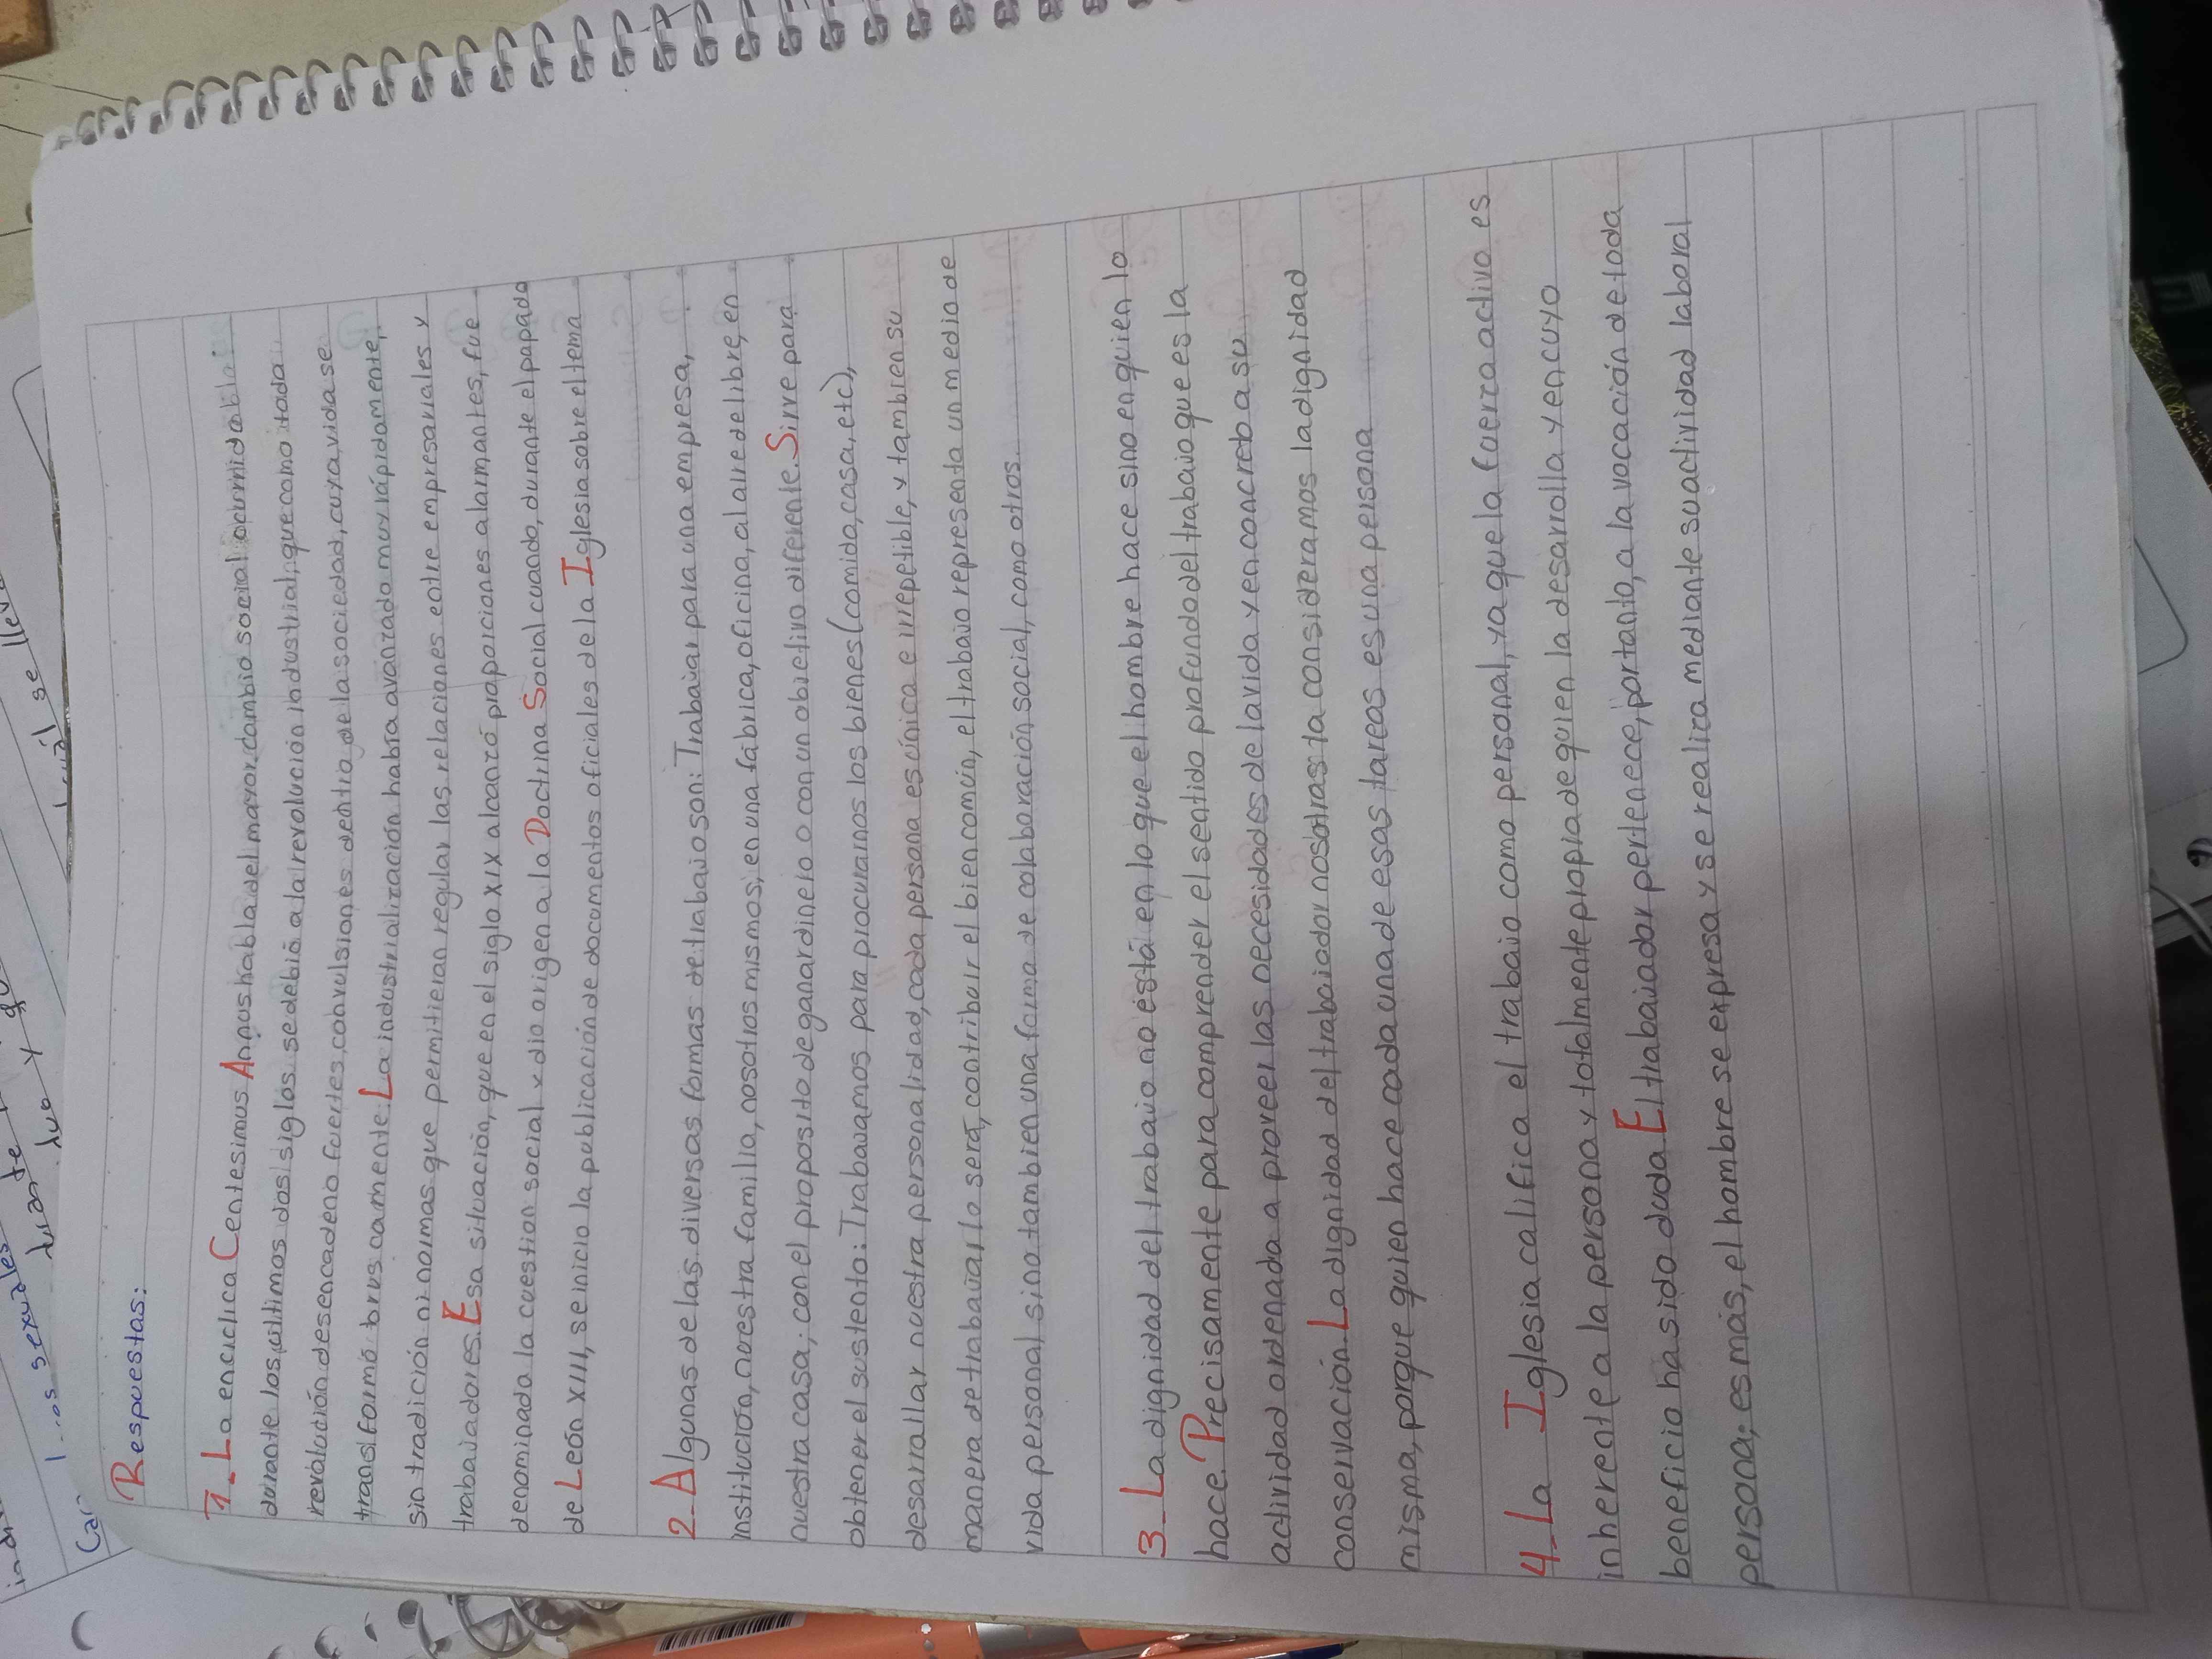 Respuestas:
1_ La enciclica Centesimus Annus habla del mayor cambio social ocurrido
durante los últimos dos siglos se debió a la revolución industrial, que como toda
revolución desencadeno fuertes convulsiones dentro de la sociedad, cuya vida se
transformó bruscamente. La industrialización habia avanzado muy rápidamente,
sin tradición ni normas que permitieran regular las relaciones entre empresariales y
trabajadores. Esa situación, que en el siglo XIX alcanzó proporciones alarmantes, fue
denominada la cuestion social y dio origen a la Doctrina Social cuando, durante el papado
de León XIII, se inicio la publicación de documentos oficiales de la Iglesia sobre el tema
2_ Algunas de las diversas formas de trabajo son: Trabajar para una empresa,
institución, nuestra familia, nosotros mismos; en una fábrica, oficina, al aire libre, en
nuestra casa; con el proposito de ganar dinero o con un objetivo diferente. Sirve para
obtener el sustento: Trabajamos para procurarnos los bienes (comida, casa, etc),
desarrollar nuestra personalidad, cada persona es única e irrepetible, y tambien su
manera de trabajar lo será, contribuir el bien común, el trabajo representa un medio de
vida personal, sino tambien una forma de colaboración social, como otros.
3_ La dignidad del trabajo no está en lo que el hombre hace sino en quien lo
hace. Precisamente para comprender el sentido profundo del trabajo que es la
actividad ordenada a proveer las necesidades de la vida y en concreto a su
conservación. La dignidad del trabajador nosotras la consideramos la dignidad
misma, porque quien hace cada una de esas tareas es una persona
4_ La Iglesia califica el trabajo como personal, ya que la fuerza activa es
inherente a la persona y totalmente propia de quien la desarrolla y en cuyo
beneficio ha sido duda El trabajador pertenece, por tanto, a la vocación de toda
persona; es más, el hombre se expresa y se realiza mediante su actividad laboral